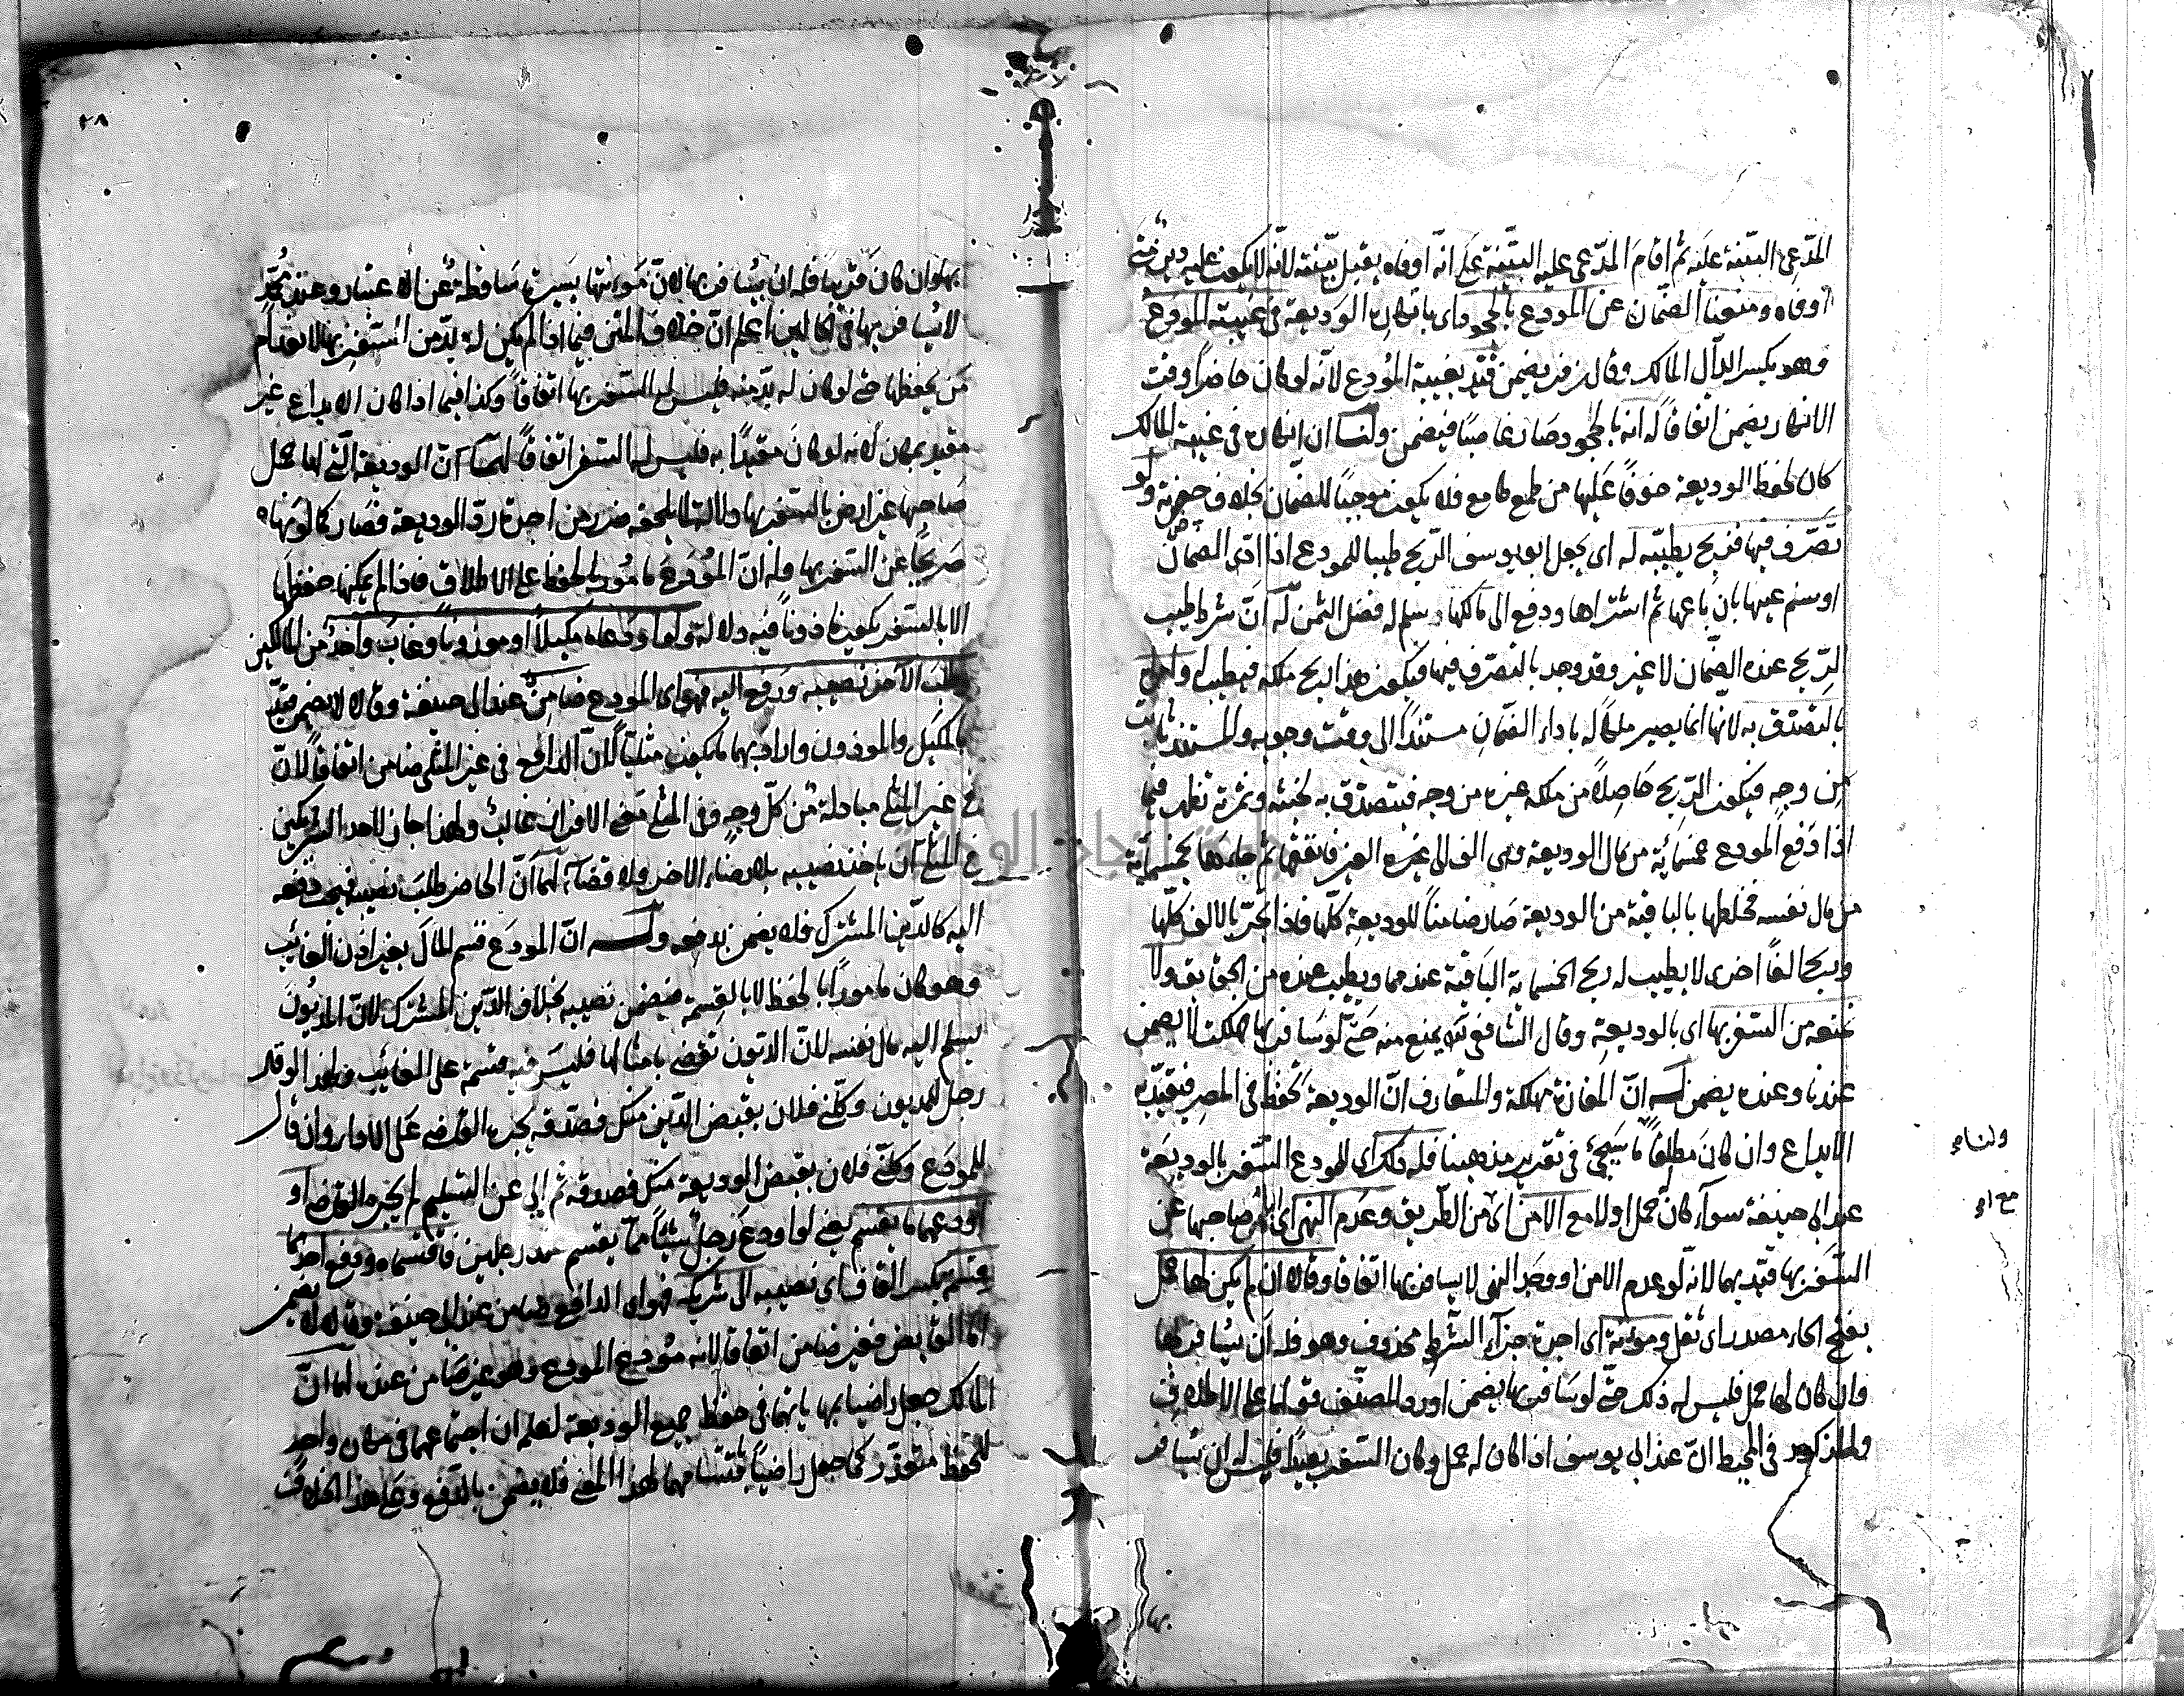 المدّعي البيّنة عليه ثم اقام المدّعى عليه البيّنة على انه اوفاه يقبل بيّنته لانه لا يكون عليه دين حتى
اوفاه ومنعنا الضمان عن المودع بالجحود اى بانكار الوديعة فى غيبته المودع
وهو بكسر الدال المالك وقال زفر يضمن قيّد بغيبة المودع لانه لو كان حاضرا وقت
الانكار يضمن اتفاقا له انه بالجحود صار غاصبا فيضمن ولنا ان انكاره فى غيبة المالك
كان لحفظ الوديعة خوفا عليها من طمع طامع فلا يكون موجبا للضمان بخلاف حضرته ولو
تصرّف فيها فربح يطيّبه له اى يجعل ابو يوسف الربح طيبا للمودع اذا ادّى الضمان
او سلم عينها بان باعها ثم اشتراها ودفع الى مالكها وسلم له فضل الثمن له انّ شرط طيب
الربح عنده الضمان لا غير وقد وجد بالتصرّف فيها فيكون هذا الربح ملكه فيطيب له وامرا
بالتصدّق به لانها انما يصير ملكا له باداء الضمان مستندا الى وقت وجوبه والمستند ثابت
من وجه فيكون الربح حاصلا من ملكه غيره من وجه فيتصدّق به لخبثه وثمرته تظهر فيما
اذا دفع المودع خمسمائة من مال الوديعة وهى الف الى غيره فانفقها ثم جاءها بخمسمائة
من مال نفسه فخلطها بالباقية من الوديعة صار ضامنا للوديعة كلها فاذا اتجر بالالف كلها
وربح الفا اخرى لا يطيب له ربح الخمسمائة الباقية عندهما ويطيب عنده من الحقايق ولا
نمنعه من السفر بها اى بالوديعة وقال الشافعى يمنع منه حتى لو سافر بها فهلكت لا يضمن
عندنا وعنده يضمن له انّ المفازة مهلكة والمتعارف انّ الوديعة تحفظ فى المصر فيقيّد
الايداع وان كان مطلقا ما سيجئ فى تقرير مذهبنا فله ذلك اى للمودع السفر بالوديعة
عند ابى حنيفة سواء كان حمل او لا مع الامن اى من الطريق وعدم النهى اى نهى صاحبها عن
السفر بها قيّد بهما لانه لو عدم الامن او وجد النهى لا يسافر بها اتفاقا وقالا ان لم يكن لها حمل
بفتح الحاء مصدر اى ثقل ومؤنة اى اجرة جزاء الشرط محذوف وهو فله ان يسافر بها
وان كان لها حمل فليس له ذلك حتى لو سافر بها يضمن اورد المصنف قولهما على الاطلاق
والمذكور فى المحيط انّ عند ابى يوسف اذا كان له حمل وكان السفر بعيدا فليس له ان يسافر
بها
ولنا
مع او
٢٨
بها وان كان قريبا فله ان يسافر بها لانّ مؤنتها يسيرة ساقطة عن الاعتبار وعند محمّد
لا يسافر بها فى الحالين اعلم انّ خلاف المتن فيما اذا لم يكن له بدّ من السفر بها لانعدام
من يحفظها حتى لو كان له بدّ منه فليس له السفر بها اتفاقا وكذا فيما اذا كان الايداع غير
مقيد بمكان لانه لو كان مقيّدا به فليس له السفر اتفاقا لهما انّ الوديعة التى لها حمل
صاحبها غير راض بالسفر بها دلالة لما يلحقه ضرر من اجرة ردّ الوديعة فصار كما لو نهاه
صريحا عن السفر بها وله انّ المودع مامور بالحفظ على الاطلاق فاذا لم يمكنه حفظها
الا بالسفر يكون ماذونا فيه دلالة ولو اودعاه مكيلا او موزونا وغاب واحد من المالكين
وطلب الآخر نصيبه ودفع اليه فهو اى المودع ضامن عند ابى حنيفة وقالا لا يضمن قيّد
بالمكيل والموزون واراد بهما ما يكون مثليا لانّ الدافع فى غير المثلى ضامن اتفاقا لانّ
فى غير المثلى مبادلة من كلّ وجه وفى المثلى معنى الافراز غالب ولهذا جاز لاحد الشريكين
فى المثلى ان ياخذ نصيبه بلا رضاء الآخر ولا قضاء لهما انّ الحاضر طلب نصيبه فيجب دفعه
اليه كالدين المشترك فلا يضمن بدفعه وله انّ المودع قسم المال بغير اذن الغائب
وهو كان مامورا بالحفظ لا بالقسمة فيضمن نصيبه بخلاف الدّين المشترك لانّ المديون
يسلم اليه مال نفسه لانّ الديون تقضى بامثالها فليس فيه قسمة على الغائب ولهذا لو قال
رجل للمديون وكّلنى فلان بقبض الدّين منك فصدّقه يجبره القاضى على الاداء وان قال
للمودع وكلّنى فلان بقبض الوديعة منك فصدقه ثم ابى عن التسليم لم يجبره القاضى او
اودعهما ما يقسم يعنى لو اودع رجل شيئا ممّا يقسم عند رجلين فاقتسماه ودفع احدهما
قسمه بكسر القاف اى نصيبه الى شريكه فهو اى الدافع ضامن عند ابى حنيفة وقالا لا يضمن
امّا القابض فغير ضامن اتفاقا لانه مودع المودع وهو غير ضامن عنده لهما انّ
المالك جعل راضيا بهما بايهما فى حفظ جميع الوديعة لعلمه ان اجتماعهما فى مكان واحد
للحفظ متعذّر كما جعل راضيا بقسمتهما لهذا المعنى فلا يضمن بالدّفع وعلى هذا الخلاف